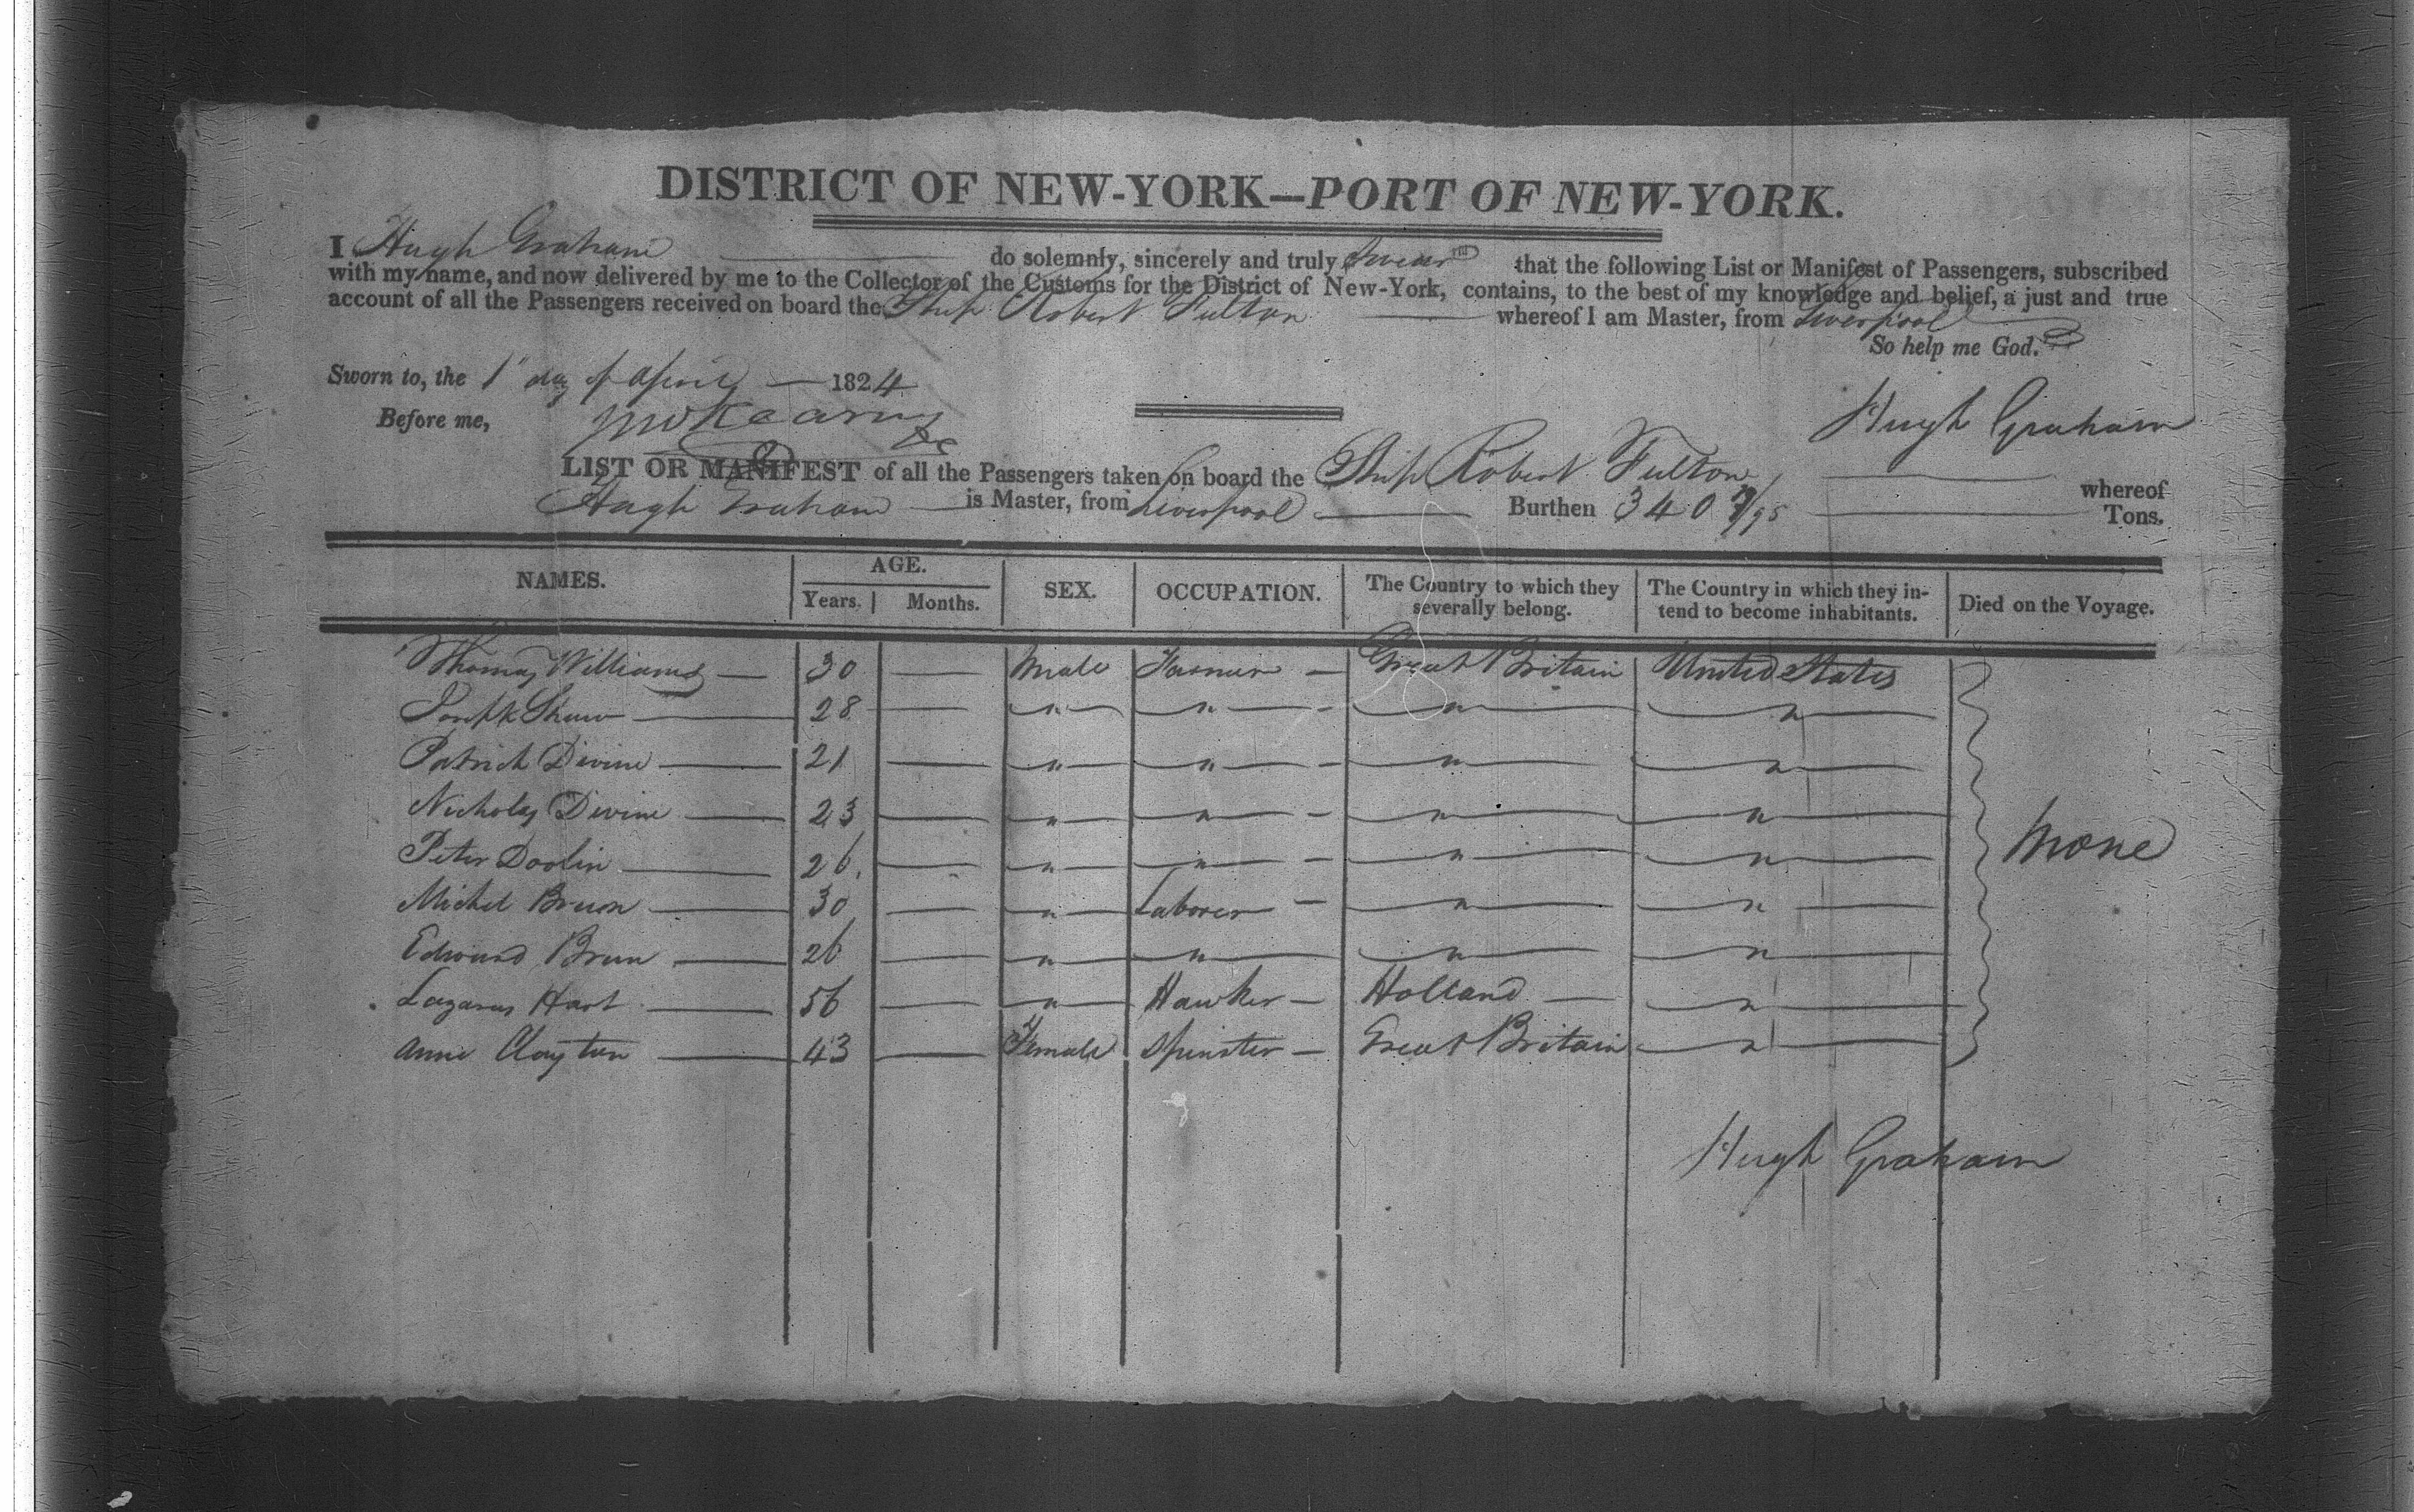 DISTRICT OF NEW-YORK—PORT OF NEW-YORK.
I Hugh Graham do solemnly, sincerely and truly swear that the following List or Manifest of Passengers, subscribed
with my name, and now delivered by me to the Collector of the Customs for the District of New-York, contains, to the best of my knowledge and belief, a just and true
account of all the Passengers received on board the Ship Robert Fulton whereof I am Master, from Liverpool
So help me God.
Sworn to, the 1st day of April 1824
Before me,
Hugh Graham
LIST OR MANIFEST of all the Passengers taken on board the Ship Robert Fulton whereof
Hugh Graham is Master, from Liverpool Burthen 340 Tons.
NAMES. AGE. Years. Months. SEX. OCCUPATION. The Country to which they severally belong. The Country in which they intend to become inhabitants. Died on the Voyage.
Thomas Williams — 30 — Male Farmer — Great Britain United States
Joseph Shaw — 28 — " " — " "
Patrick Divine — 21 — " " — " "
Nicholas Divine — 23 — " " — " "
Peter Doolin — 26 — " " — " "
None
Michel Bruon — 30 — " Laborer — " "
Edward Brun — 26 — " " " "
Lazarus Hart — 56 — " Hawker — Holland — "
Anne Clayton — 43 — Female Spinster — Great Britain "
Hugh Graham